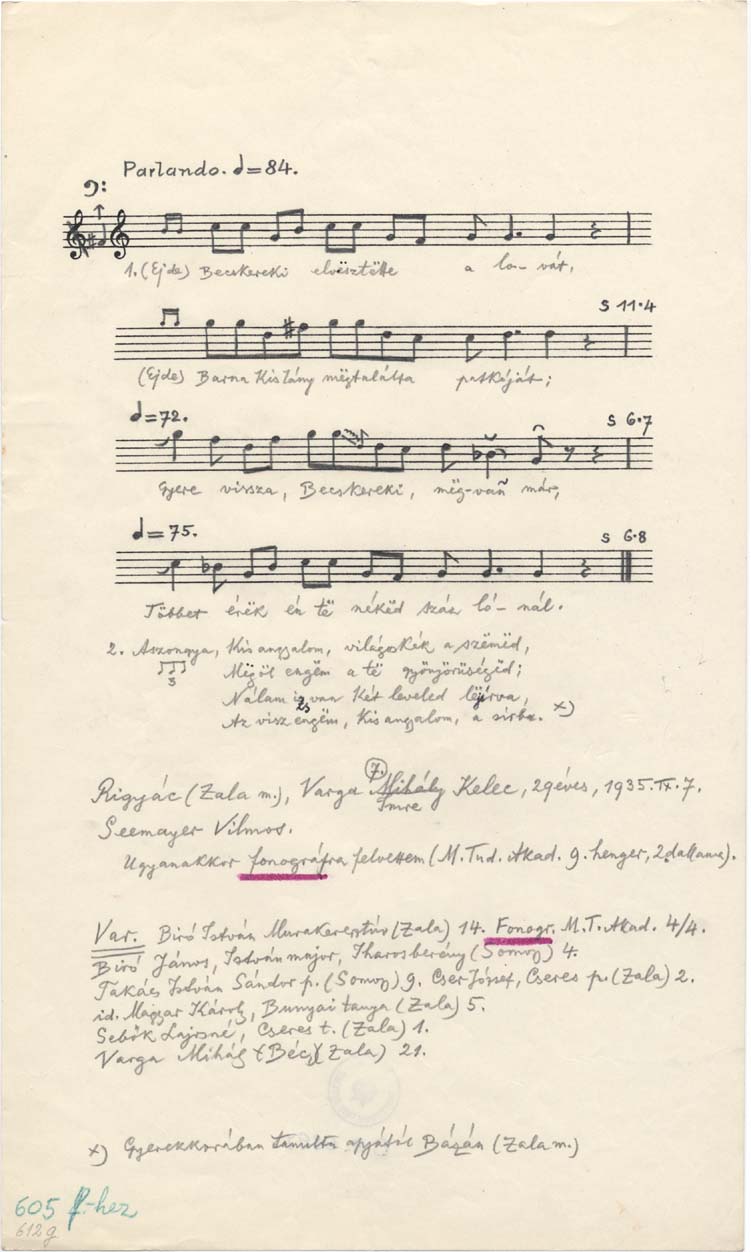 Parlando. 𝅗𝅥=84.
1. (Ejde) Becskereki elvësztëtte a lo–vát,
S 11·4
(Ejde) Barna kislány mëgtalálta patkóját;
𝅗𝅥=72.
S 6·7
Gyere vissza, Becskereki, mëg-van már,
𝅗𝅥=75.
S 6·8
Többet érëk én të nékëd száz ló–nál.
2. Aszongya, kis angyalom, világoskék a szëmëd,
3
Mëgöl engëm a të gyönyörűségëd;
Nálam is van két leveled lëjírva,
Az visz engëm, kis angyalom, a sírba. x)
Rigyác (Zala m.), Varga Mihály Imre Kelec, 29éves, 1935.IX.7.
7.
Seemayer Vilmos.
Ugyanakkor fonográfra felvettem (M. Tud. Akad. 9. henger, 2. dallama).
Var. Biró István Murakeresztúr (Zala) 14. Fonogr. M.T. Akad. 4/4.
Biró János, István major, Iharosberény (Somogy) 4.
Takács István Sándor p. (Somogy) 9. Cser József, Cseres p. (Zala) 2.
id. Magyar Károly, Bunyai tanya (Zala) 5.
Sebők Lajosné, Cseres t. (Zala) 1.
Varga Mihály (Béc) (Zala) 21.
x) Gyerekkorában tanulta apjától (Zala m.)
605 f-hez
612g